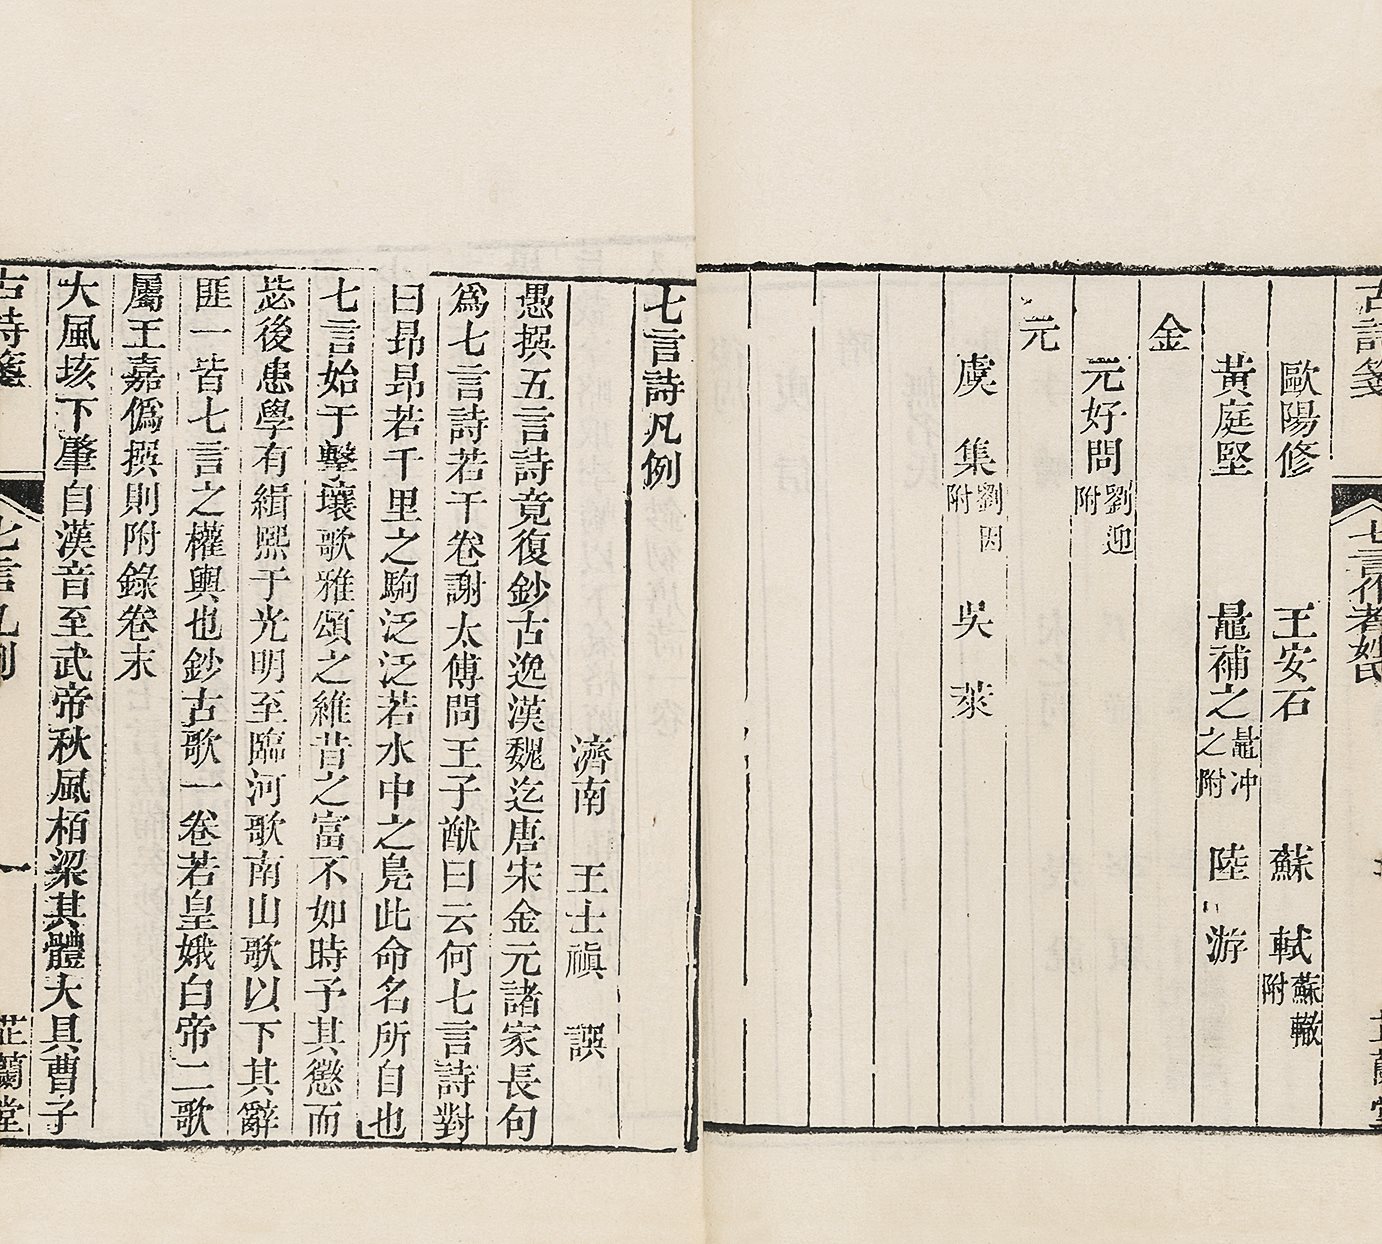 古詩箋
七言作者姓氏
芷蘭堂
歐陽修 王安石 蘇軾 蘇轍附
黃庭堅 鼂補之 鼂冲之附 陸游
金
元好問 劉迎附
元
虞集 劉因附 吳萊
七言詩凡例
濟南 王士禛 譔
愚撰五言詩竟復鈔古逸漢魏迄唐宋金元諸家長句
爲七言詩若干卷謝太傅問王子猷曰云何七言詩對
曰昻昻若千里之駒泛泛若水中之鳧此命名所自也
七言始于擊壤歌雅頌之維昔之富不如時予其懲而
毖後患學有緝熙于光明至臨河歌南山歌以下其辭
匪一皆七言之權輿也鈔古歌一卷若皇娥白帝二歌
屬王嘉僞撰則附錄卷末
大風垓下肇自漢音至武帝秋風栢梁其體大具曹子
古詩箋
七言凡例
一
芷蘭堂